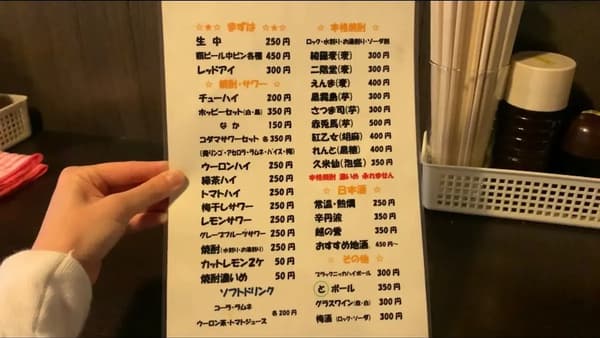 ☆★☆ まずは ☆★☆
生 中 250円
瓶ビール中ビン各種 450円
レッドアイ 300円
☆ 焼酎・サワー ☆
チューハイ 200円
ホッピーセット(白・黒) 350円
なか 150円
コダマサワーセット 各350円
(青リンゴ・アセロラ・ラムネ・バイス・梅)
ウーロンハイ 250円
緑茶ハイ 250円
トマトハイ 250円
梅干しサワー 250円
レモンサワー 250円
グレープフルーツサワー 250円
焼酎(水割り・お湯割り) 250円
カットレモン2ケ 50円
焼酎濃いめ 50円
ソフトドリンク
コーラ・ラムネ
各200円
ウーロン茶・トマトジュース
☆ 本格焼酎 ☆
ロック・水割り・お湯割り・ソーダ割
綾羅麦(麦) 300円
二階堂(麦) 300円
えんま(麦) 400円
黒霧島(芋) 300円
さつま司(芋) 300円
赤兎馬(芋) 500円
紅乙女(胡麻) 400円
れんと(黒糖) 400円
久米仙(泡盛) 350円
本格焼酎 濃いめ 承れません
☆ 日本酒 ☆
常温・熱燗 250円
辛丹波 350円
越の誉 350円
おすすめ地酒 450円~
☆ その他 ☆
ブラックニッカハイボール 300円
とボール 350円
グラスワイン(白・赤) 300円
梅酒(ロック・ソーダ) 300円